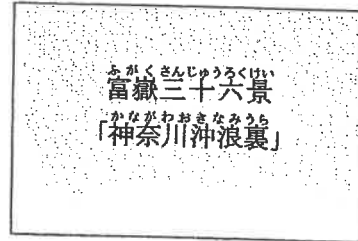 ふがくさんじゅうろくけい
富嶽三十六景
かながわおきなみうら
「神奈川沖浪裏」